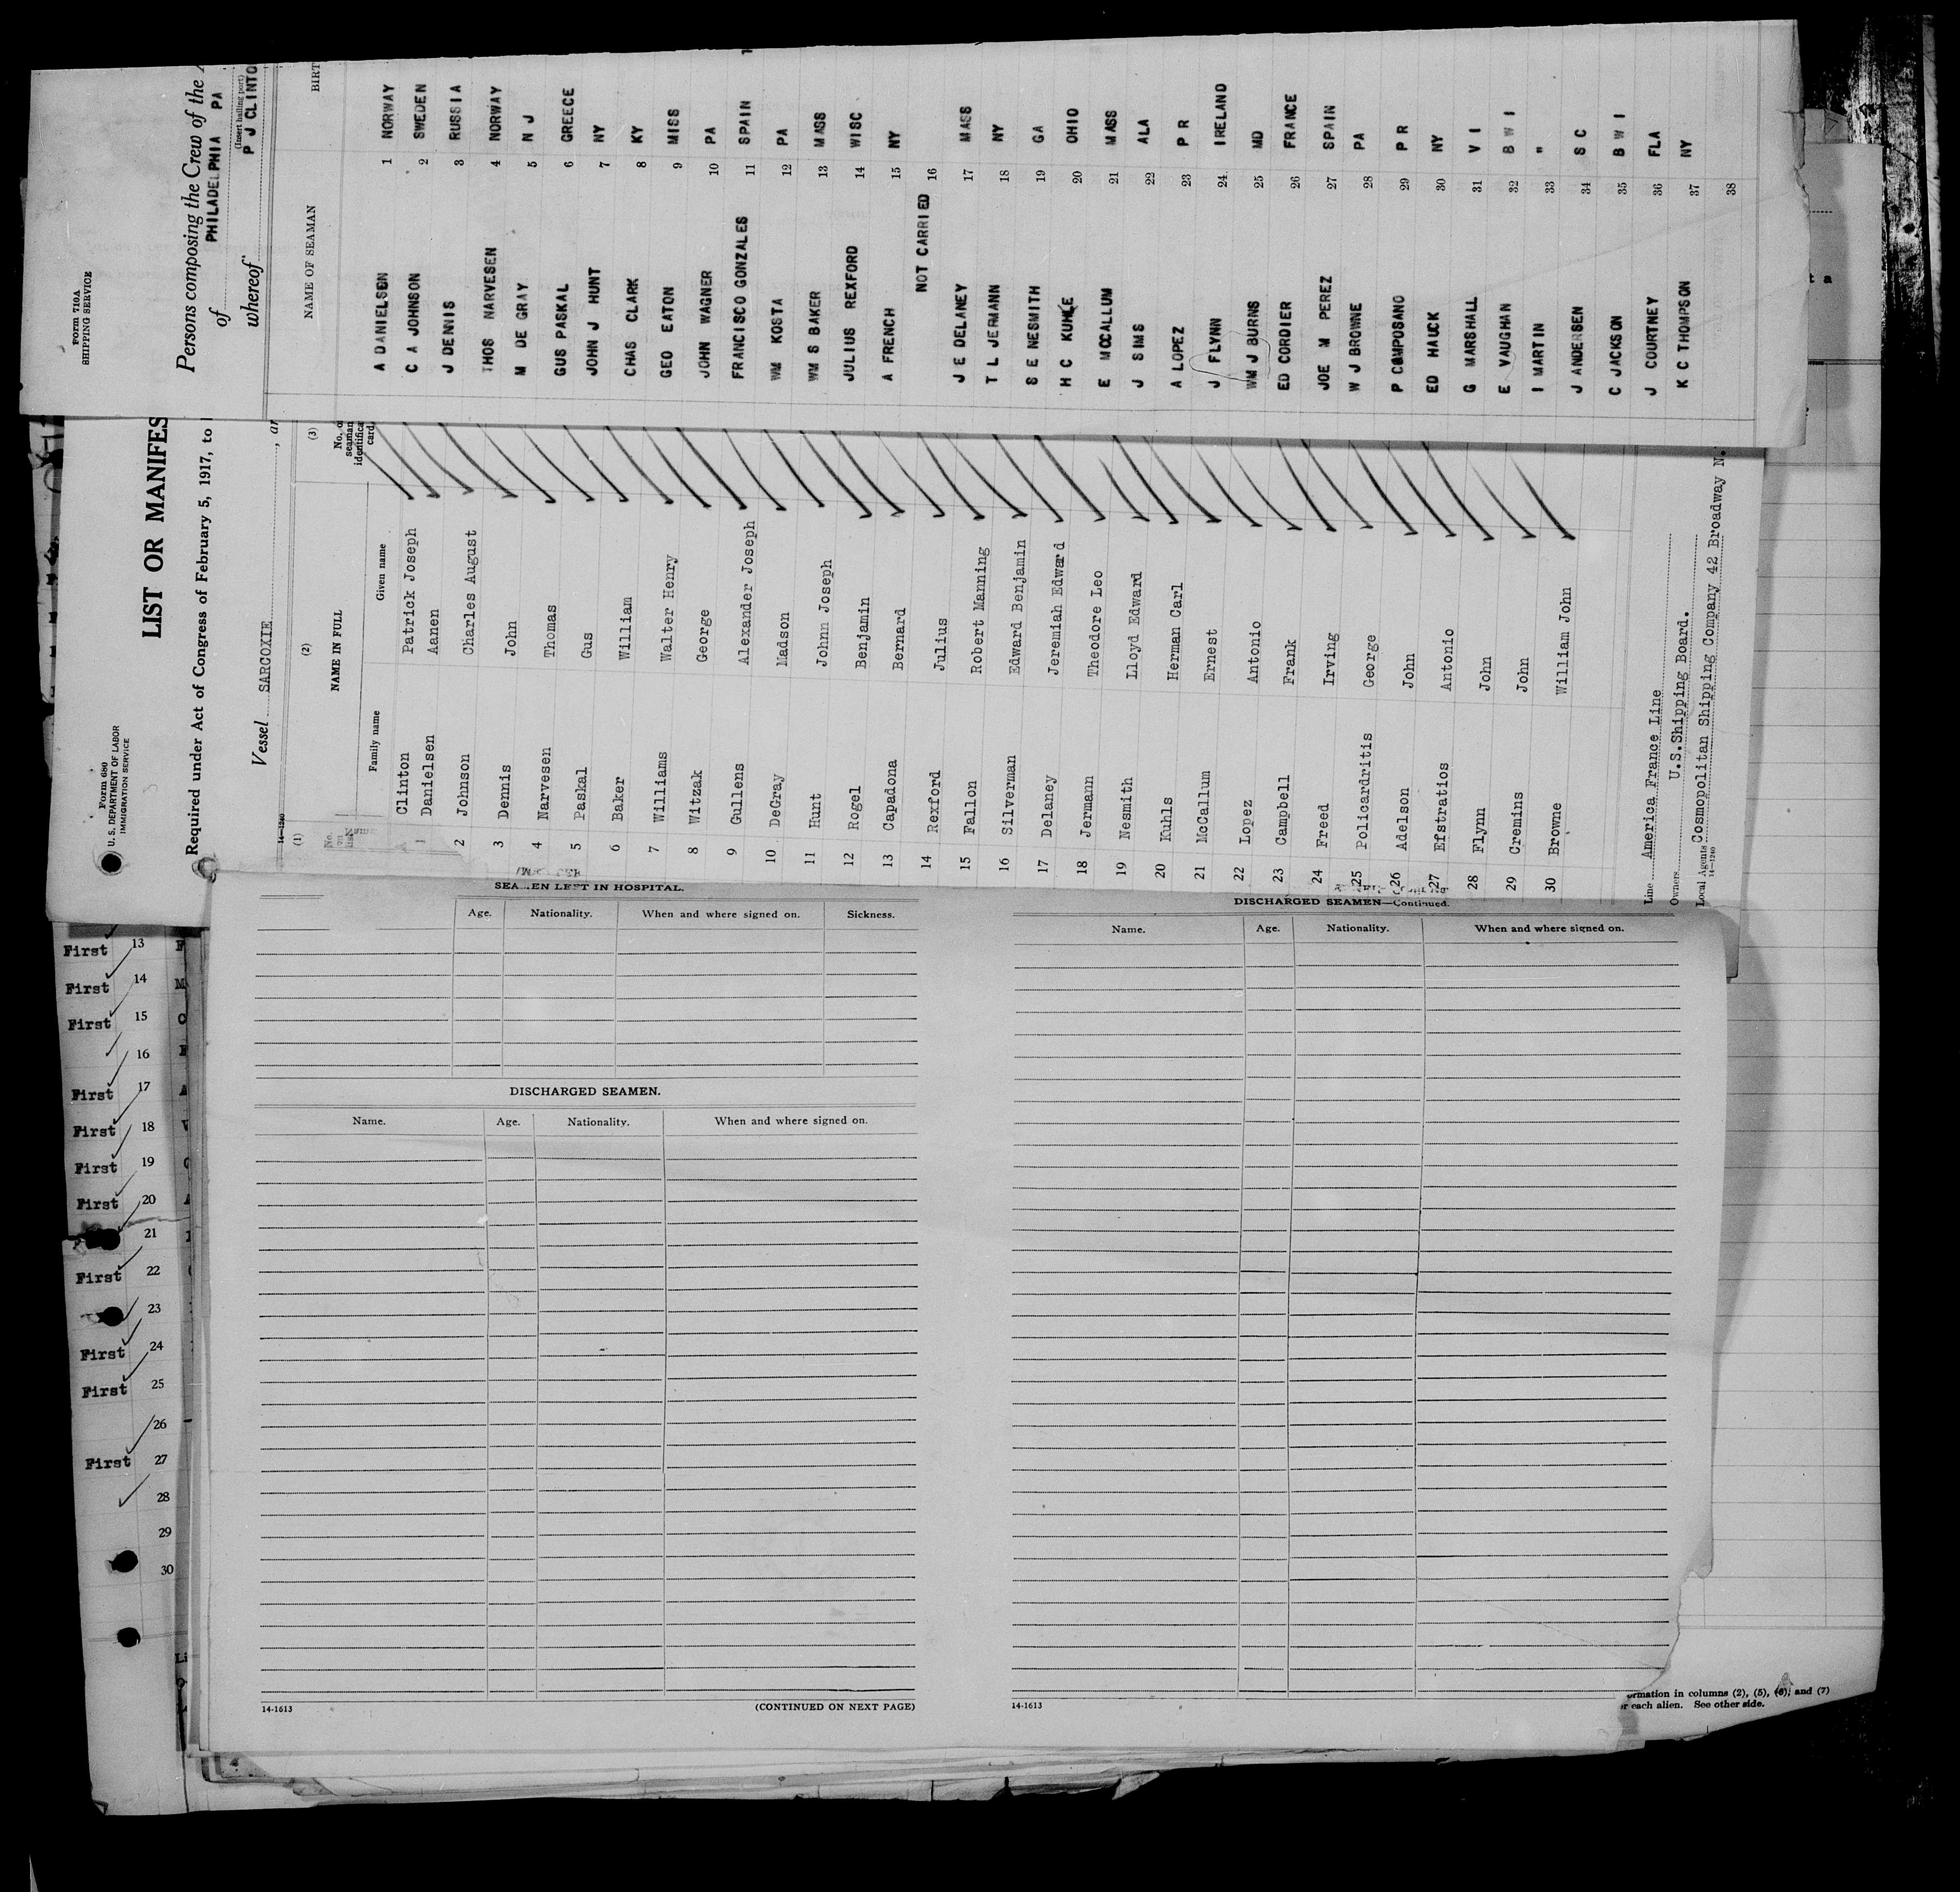 Form 710A
SHIPPING SERVICE
Persons composing the Crew of the
of PHILADELPHIA PA
(Insert hailing port)
whereof P J CLINTO
NAME OF SEAMAN BIRT
A DANIELSEN 1 NORWAY
C A JOHNSON 2 SWEDEN
J DENNIS 3 RUSSIA
THOS NARVESEN 4 NORWAY
M DE GRAY 5 N J
GUS PASKAL 6 GREECE
JOHN J HUNT 7 NY
CHAS CLARK 8 KY
GEO EATON 9 MISS
JOHN WAGNER 10 PA
FRANCISCO GONZALES 11 SPAIN
WM KOSTA 12 PA
WM S BAKER 13 MASS
JULIUS REXFORD 14 WISC
A FRENCH 15 NY
NOT CARRIED 16
J E DELANEY 17 MASS
T L JERMANN 18 NY
S E NESMITH 19 GA
H C KUHLE 20 OHIO
E MCCALLUM 21 MASS
J SIMS 22 ALA
A LOPEZ 23 P R
J FLYNN 24 IRELAND
WM J BURNS 25 MD
ED CORDIER 26 FRANCE
JOE M PEREZ 27 SPAIN
W J BROWNE 28 PA
P COMPOSANO 29 P R
ED HAUCK 30 NY
G MARSHALL 31 V I
E VAUGHAN 32 B W I
I MARTIN 33 "
J ANDERSEN 34 S C
C JACKSON 35 B W I
J COURTNEY 36 FLA
K C THOMPSON 37 NY
38
Form 680
U. S. DEPARTMENT OF LABOR
IMMIGRATION SERVICE
LIST OR MANIFES
Required under Act of Congress of February 5, 1917, to
Vessel SARCOXIE , ar
14-1240
(1) (2) (3)
NAME IN FULL
Family name Given name
Clinton Patrick Joseph
1 Danielsen Aanen
2 Johnson Charles August
3 Dennis John
4 Narvesen Thomas
5 Paskal Gus
6 Baker William
7 Williams Walter Henry
8 Witzak George
9 Gullens Alexander Joseph
10 DeGray Madson
11 Hunt Johnn Joseph
12 Rogel Benjamin
13 Capadona Bernard
14 Rexford Julius
15 Fallon Robert Manning
16 Silverman Edward Benjamin
17 Delaney Jeremiah Edward
18 Jermann Theodore Leo
19 Nesmith Lloyd Edward
20 Kuhls Herman Carl
21 McCallum Ernest
22 Lopez Antonio
23 Campbell Frank
24 Freed Irving
25 Policardritis George
26 Adelson John
27 Efstratios Antonio
28 Flynn John
29 Cremins John
30 Browne William John
Line America France Line
Owners U.S.Shipping Board.
Local Agents Cosmopolitan Shipping Company 42 Broadway N.
14-1240
First 13
First 14
First 15
16
First 17
First 18
First 19
First 20
21
First 22
23
First 24
First 25
26
First 27
28
29
30
SEAMEN LEFT IN HOSPITAL.
Age. Nationality. When and where signed on. Sickness.
DISCHARGED SEAMEN.
Name. Age. Nationality. When and where signed on.
14-1613 (CONTINUED ON NEXT PAGE)
DISCHARGED SEAMEN—Continued.
Name. Age. Nationality. When and where signed on.
14-1613
ormation in columns (2), (5), (6), and (7)
r each alien. See other side.